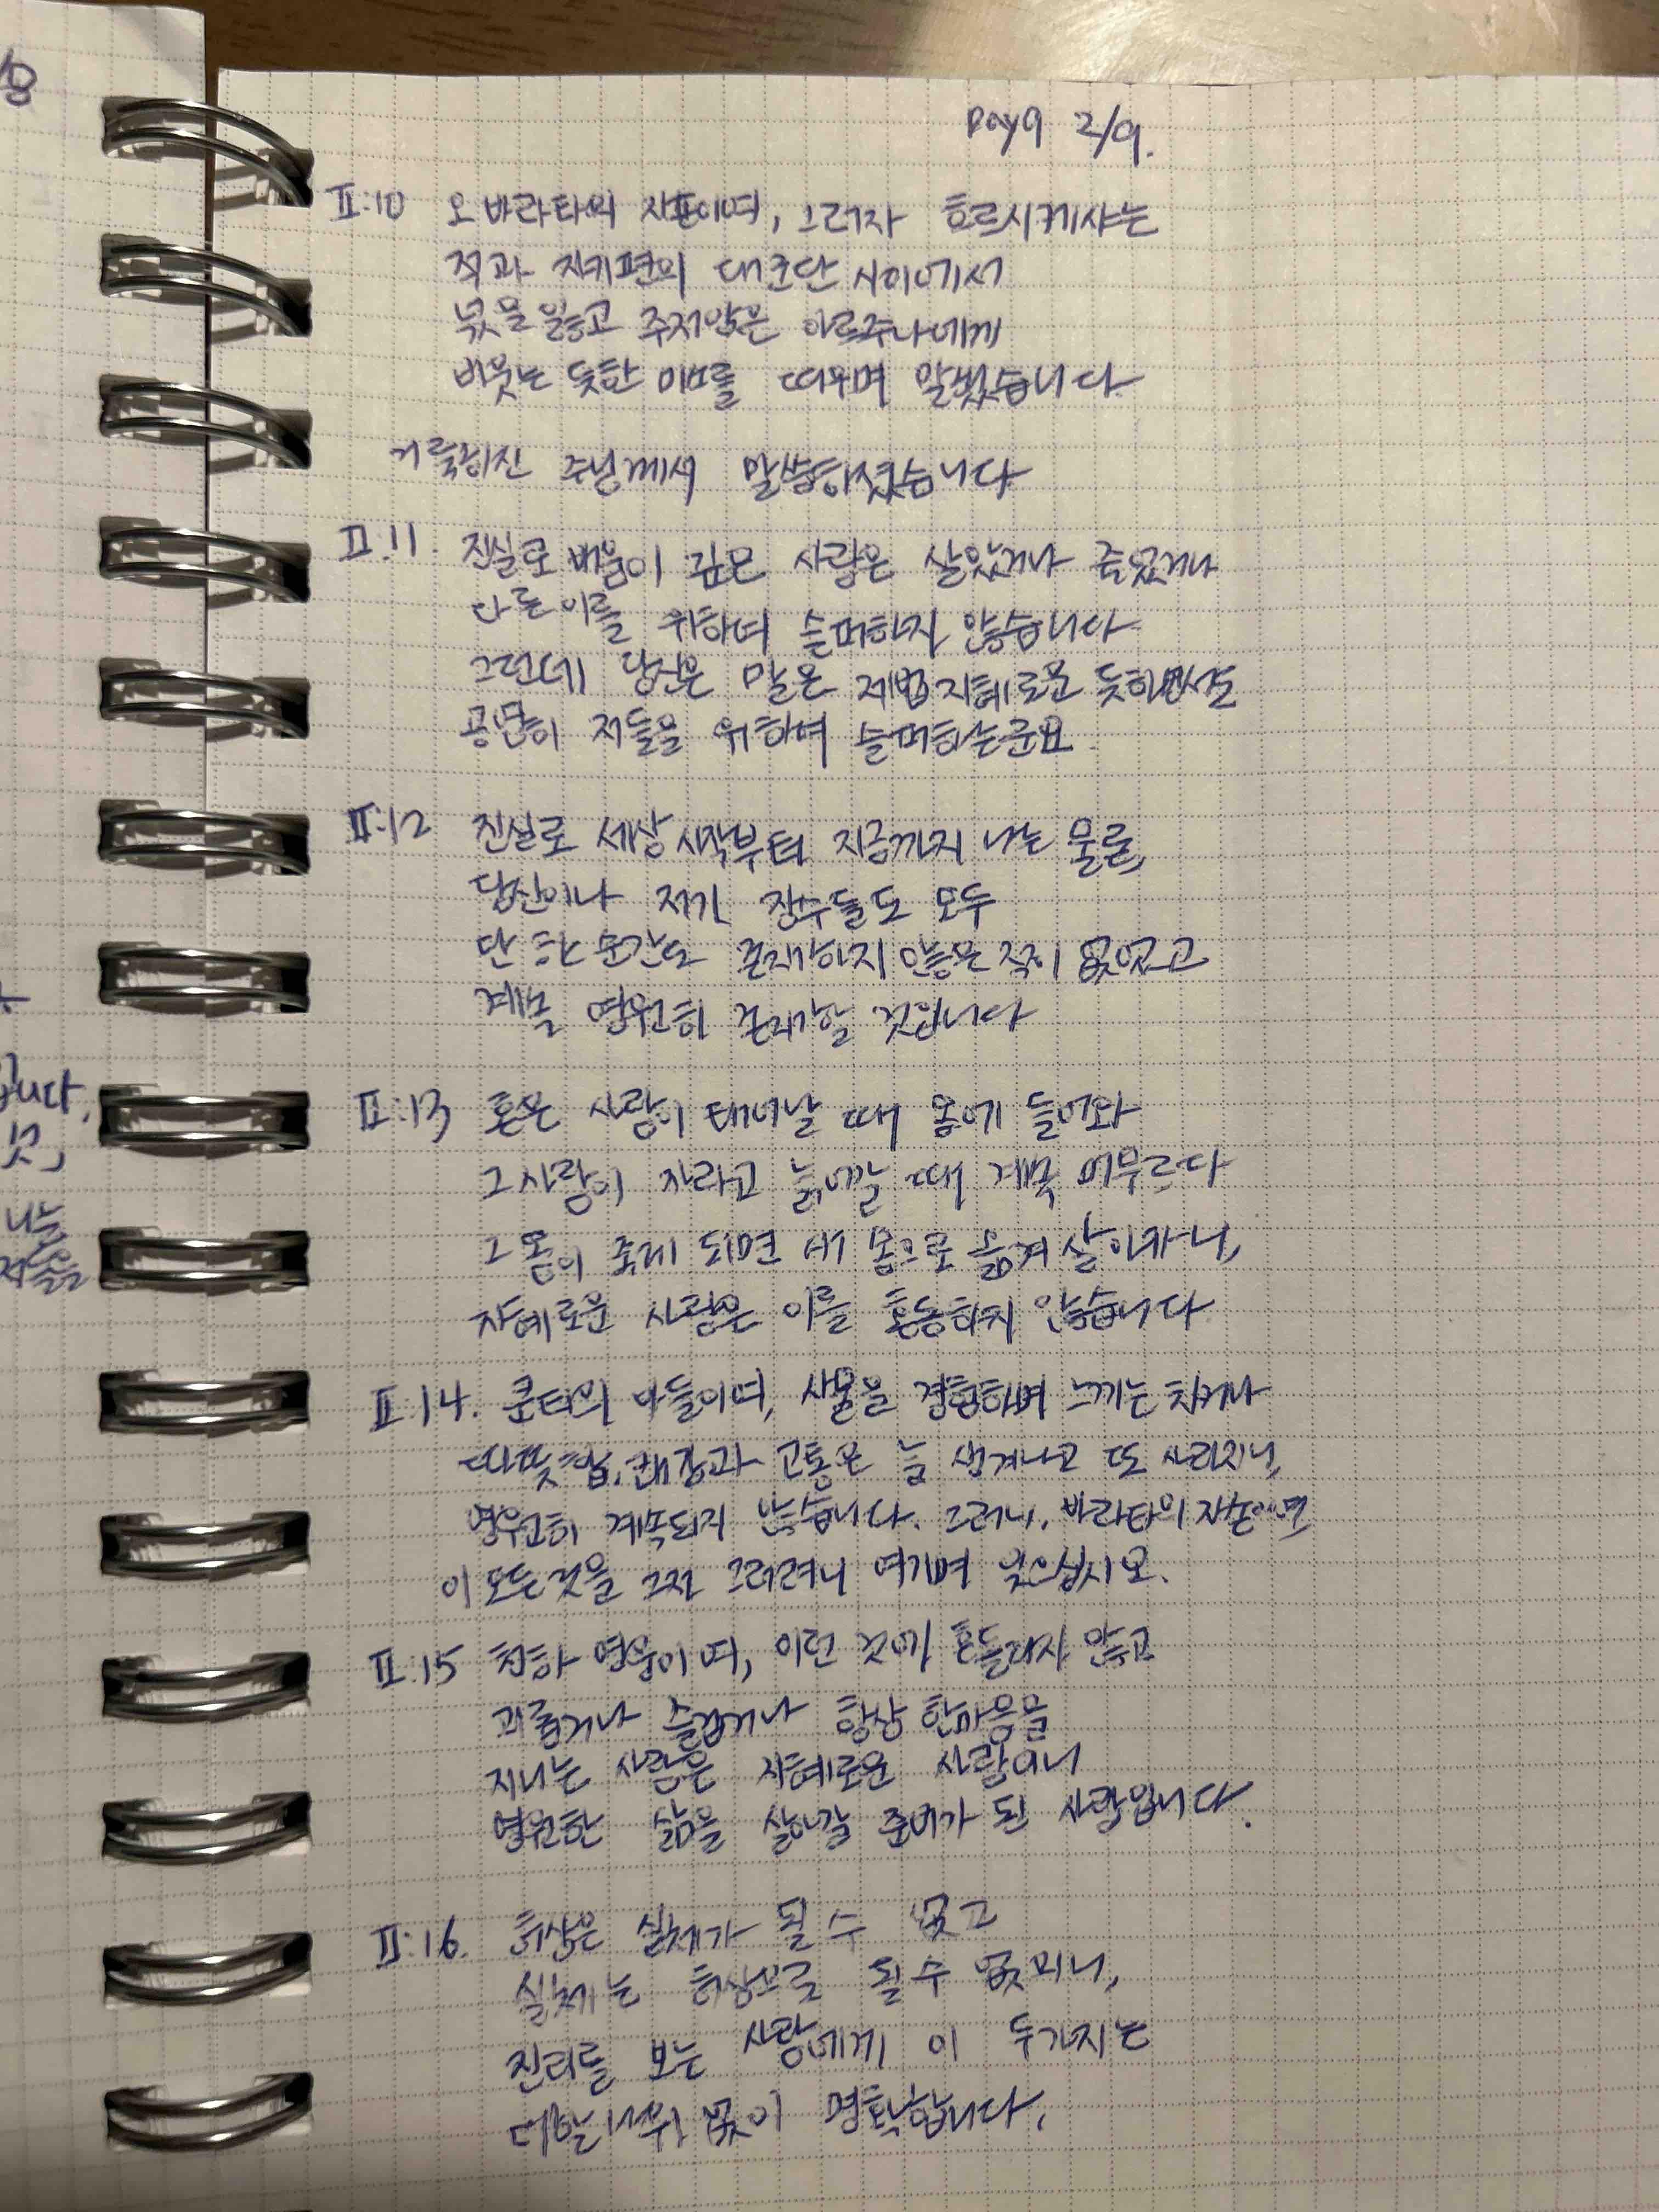 Day9 2/9.
II:10 오 바라타의 시표이여, 그러자 흐르시케샤는
적과 지키편의 대군단 사이에서
넋을 잃고 주저앉은 아르주나에게
비웃는 듯한 미소를 띠우며 말했습니다
거룩하신 주님께서 말씀하셨습니다
II.11. 진실로 배움이 깊은 사람은 살았거나 죽었거나
다른 이를 위하여 슬퍼하지 않습니다
그런데 당신은 말은 제법 지혜로운 듯하면서도
공연히 저들을 위하여 슬퍼하는군요.
II:12 진실로 세상 시작부터 지금까지 나는 물론,
당신이나 저기 장수들도 모두
단 한 순간도 존재하지 않은 적이 없었고
계속 영원히 존재할 것입니다
II:13 혼은 사람이 태어날 때 몸에 들어와
그 사람이 자라고 늙어갈 때 계속 머무르다
그 몸이 죽게 되면 새 몸으로 옮겨 살아가니,
지혜로운 사람은 이를 혼동하지 않습니다.
II.14. 쿤티의 아들이여, 사물을 경험하며 느끼는 차거나
따뜻함, 쾌감과 고통은 늘 생겨나고 또 사라지니,
영원히 계속되지 않습니다. 그러니, 바라타의 자손이여
이 모든 것을 그저 그러려니 여기며 잊으십시오.
II.15 천하 영웅이여, 이런 것에 흔들리지 않고
괴롭거나 즐겁거나 항상 한마음을
지니는 사람은 지혜로운 사람이니
영원한 삶을 살아갈 준비가 된 사람입니다.
II:16. 허상은 실체가 될 수 없고
실체는 허상으로 될 수 없으니,
진리를 보는 사람에게 이 두가지는
더할 나위 없이 명확합니다.
입니다.
것,
나는
저들을